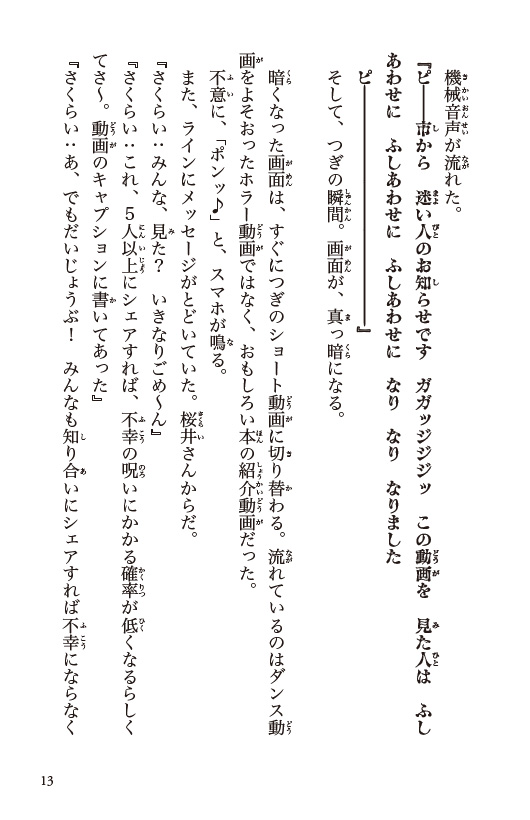 機械音声が流れた。
『ピ――市から　迷い人のお知らせです　ガガッジジジッ　この動画を　見た人は　ふし
あわせに　ふしあわせに　ふしあわせに　なり　なり　なりました
ピ――――――――――――』
そして、つぎの瞬間。画面が、真っ暗になる。
暗くなった画面は、すぐにつぎのショート動画に切り替わる。流れているのはダンス動
画をよそおったホラー動画ではなく、おもしろい本の紹介動画だった。
不意に、「ポンッ♪」と、スマホが鳴る。
また、ラインにメッセージがとどいていた。桜井さんからだ。
『さくらい：みんな、見た？　いきなりごめ〜ん』
『さくらい：これ、５人以上にシェアすれば、不幸の呪いにかかる確率が低くなるらしく
てさ〜。動画のキャプションに書いてあった』
『さくらい：あ、でもだいじょうぶ！　みんなも知り合いにシェアすれば不幸にならなく
13